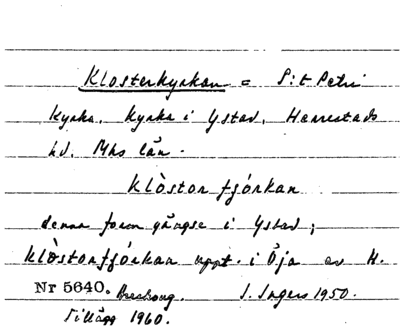 Klosterkyrkan = S:t Petri
kyrka. kyrka i Ystad, Herrestads
hd. Mhs län.
Klòstorfjórkan
denna form gångse i Ystad;
klòstorfjórkan uppt. i Öja av H.
Nr 5640. I. Ingers 1950.
Tillägg 1960.